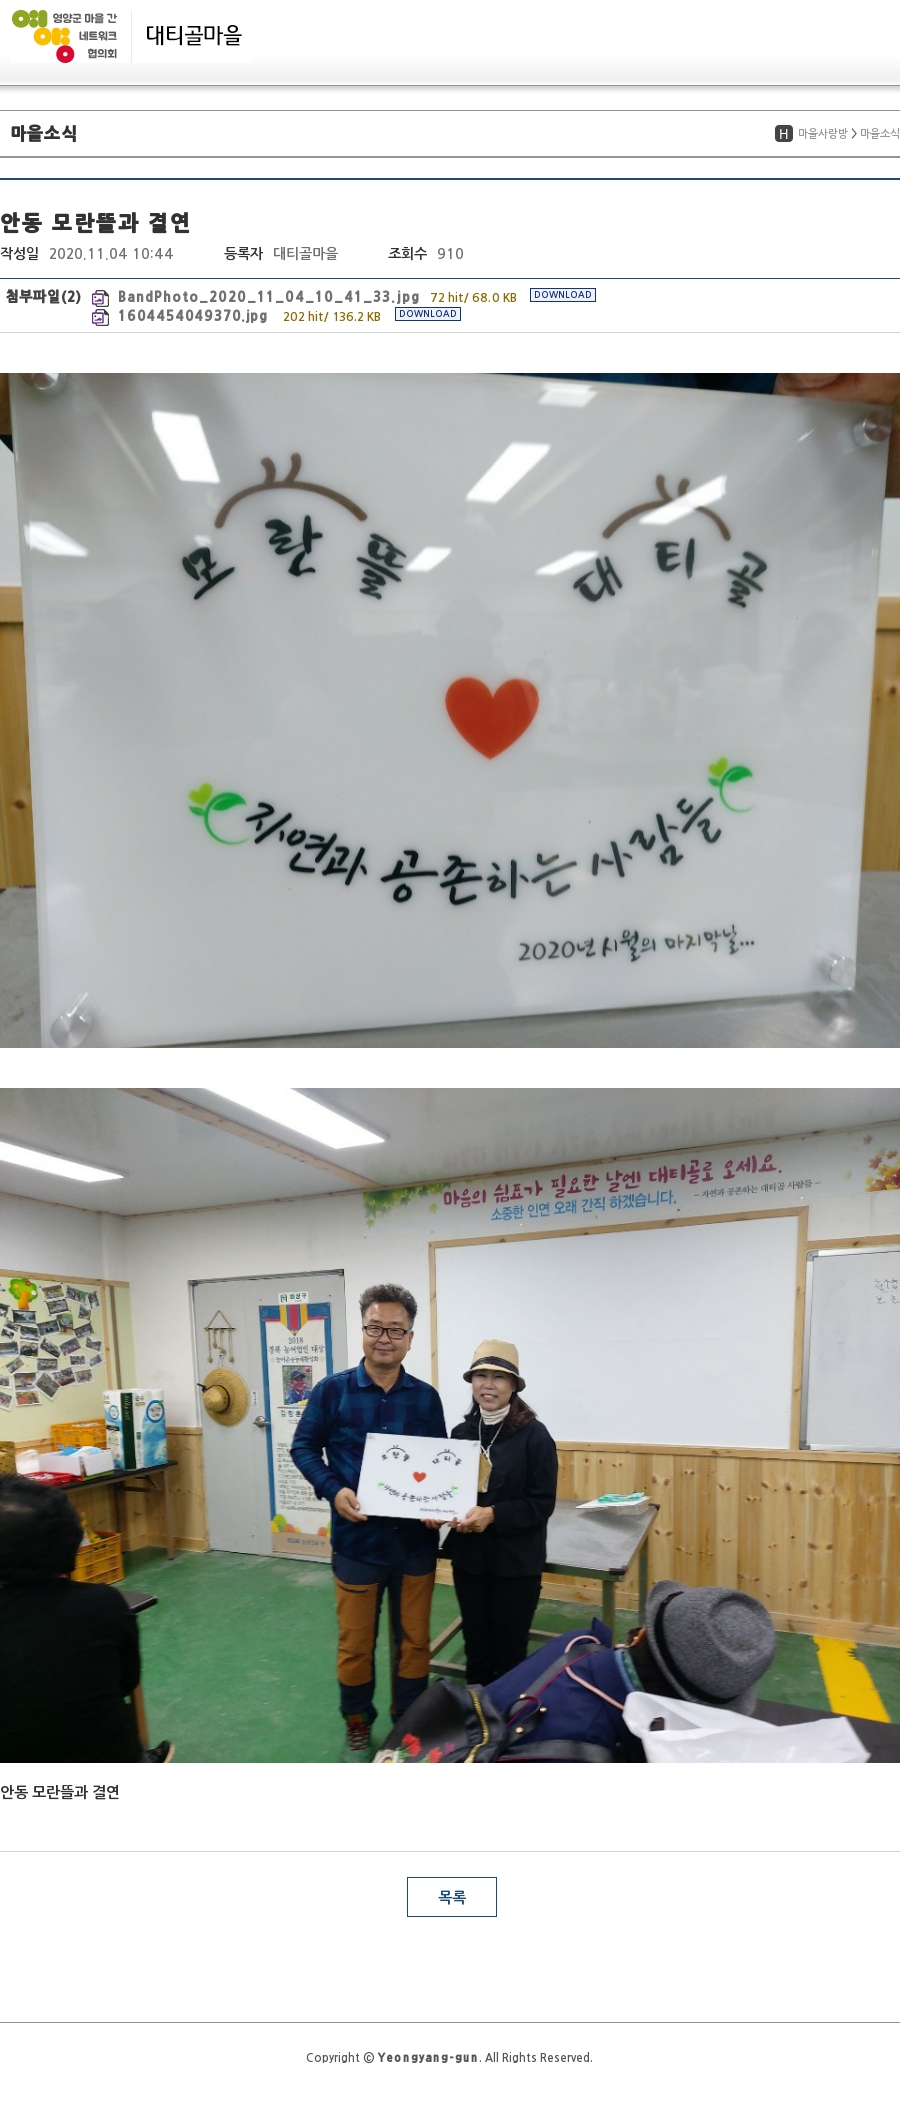 영양군 마을 간
네트워크
협의회
대티골마을
마을소식
H 마을사랑방 > 마을소식
안동 모란뜰과 결연
작성일 2020.11.04 10:44 등록자 대티골마을 조회수 910
첨부파일(2) BandPhoto_2020_11_04_10_41_33.jpg 72 hit/ 68.0 KB DOWNLOAD
1604454049370.jpg 202 hit/ 136.2 KB DOWNLOAD
모란뜰 대티골
자연과 공존하는 사람들
2020년 시월의 마지막날...
마음의 쉼표가 필요한 날엔 대티골로 오세요.
소중한 인연 오래 간직 하겠습니다. - 자연과 공존하는 대티골 사람들 -
2018
경북 농어업인 대상
모란뜰 대티골
자연과 공존하는 사람들
안동 모란뜰과 결연
목록
Copyright ⓒ Yeongyang-gun. All Rights Reserved.